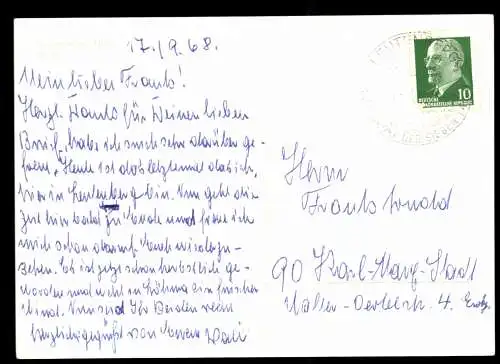 17./9.68.
Mein lieber Frank!
Herzl. Dank für Deinen lieben
Brief, habe ich mich sehr darüber ge-
freut. Heute ist das letztemal daß ich
hier in Leutenberg bin. Nun geht die
Zeit hier bald zu Ende und freue ich
mich schon darauf Euch wiederzu-
sehen. Es ist jetzt schon herbstlich ge-
worden und weht ein frischer
Wind. Nun seid Ihr Beiden recht
herzlich gegrüßt von Eurer
10
DEUTSCHE
DEMOKRATISCHE REPUBLIK
LEUTENBERG
Herrn
Frank
90 Karl-Marx-Stadt
4.